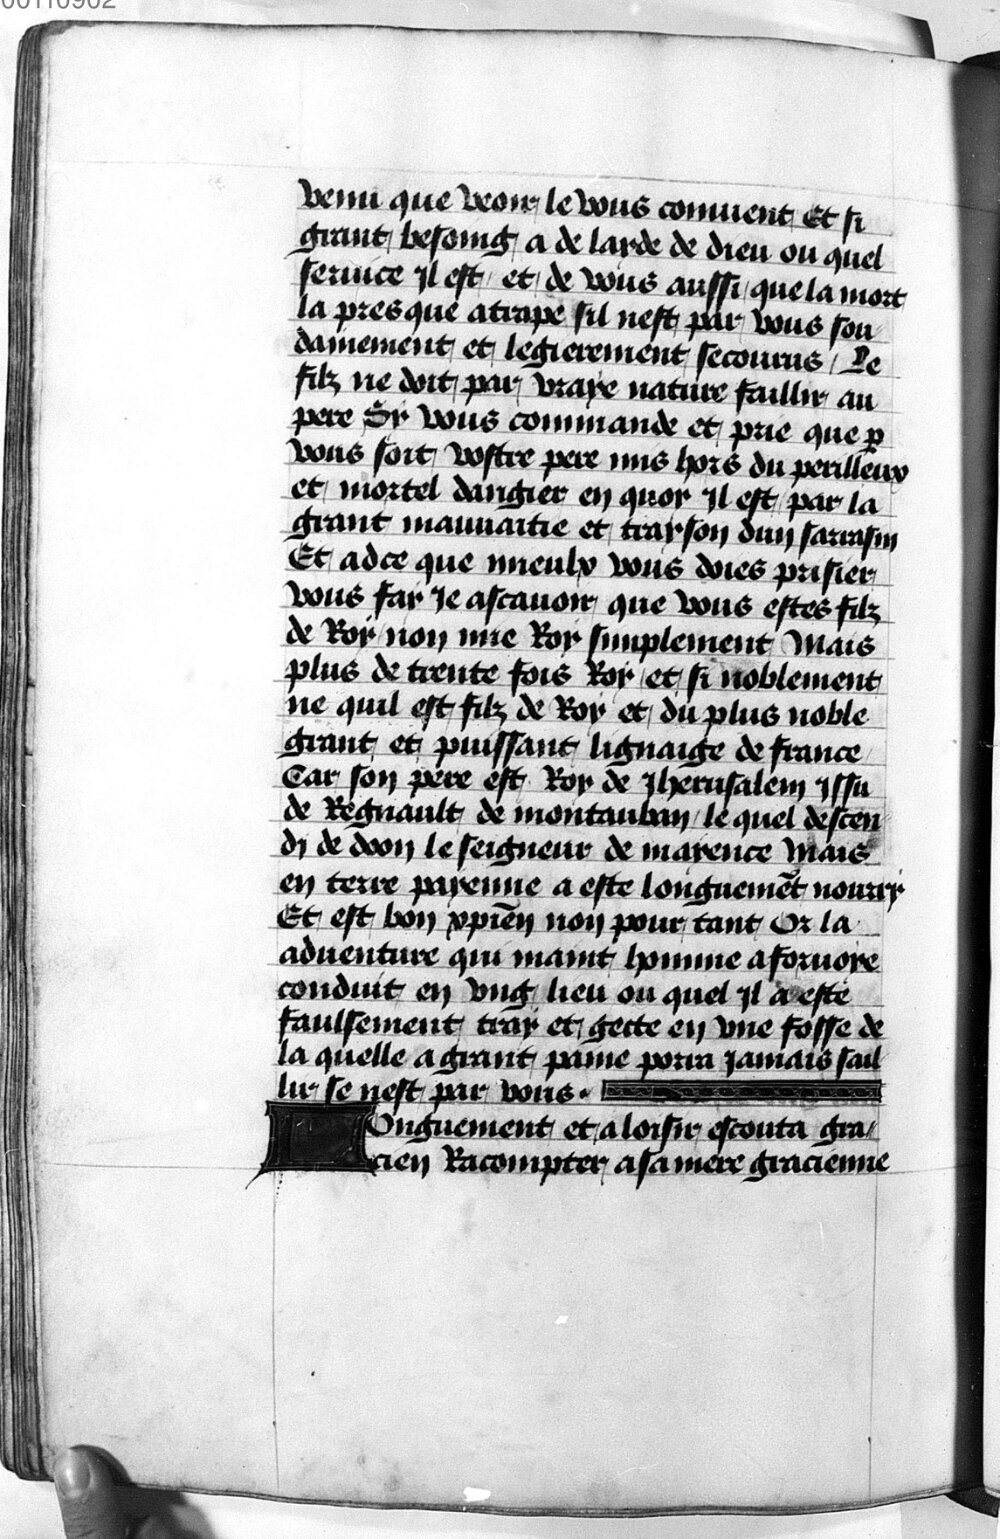 venu que veoir le vous conuient Et si
grant besoing a de layde de dieu ou quel
seruice Il est et de vous aussi que la mort
la pres que atrape sil nest par vous sou
dainement et legierement secourus / Le
filz ne doit par vraye nature faillir au
pere Sy vous commande et prie que p̲
vous soit vostre pere mis hors du perilleux
et mortel dangier en quoy Il est par la
grant mauuaitie et trayson dun sarrasin
Et adce que mieulx vous doies prisier
vous fay Je ascauoir que vous estes filz
de Roy non mie Roy simplement Mais
plus de trente fois Roy et si noblement
ne quil est filz de Roy et du plus noble
grant et puissant lignaige de france
Car son pere est Roy de Jherusalem Issu
de Regnault de montauban le quel descen
di de doon le seigneur de mayence Mais
en terre payenne a este longuemẽt nourry
Et est bon xpiẽn non pour tant Or la
aduenture qui maint homme aforuoye
conduit en vng lieu ou quel Il a este
faulsement tray et gecte en vne fosse de
la quelle a grant paine porra Jamais sail
lir se nest par vous.
Longuement et a loisir escouta gra/
cien Racompter a sa mere gracienne